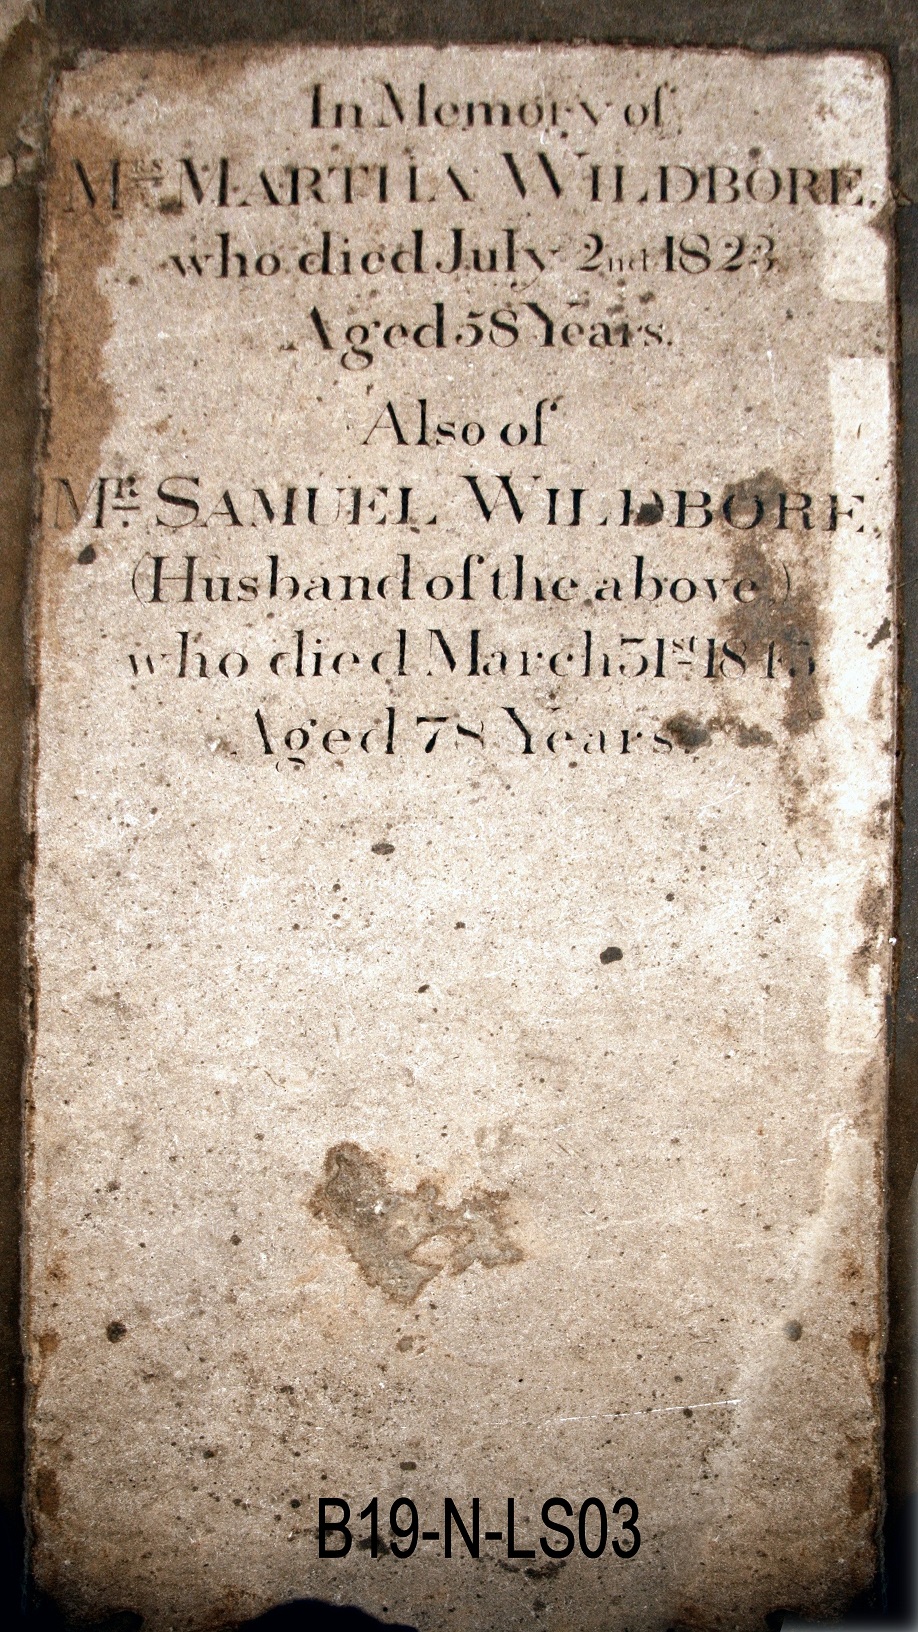 In Memory of
Mrs. MARTHA WILDBORE,
who died July 2nd 1823
Aged 58 Years.
Also of
Mr. SAMUEL WILDBORE,
(Husband of the above)
who died March 31st 1843
Aged 78 Years.
B19-N-LS03